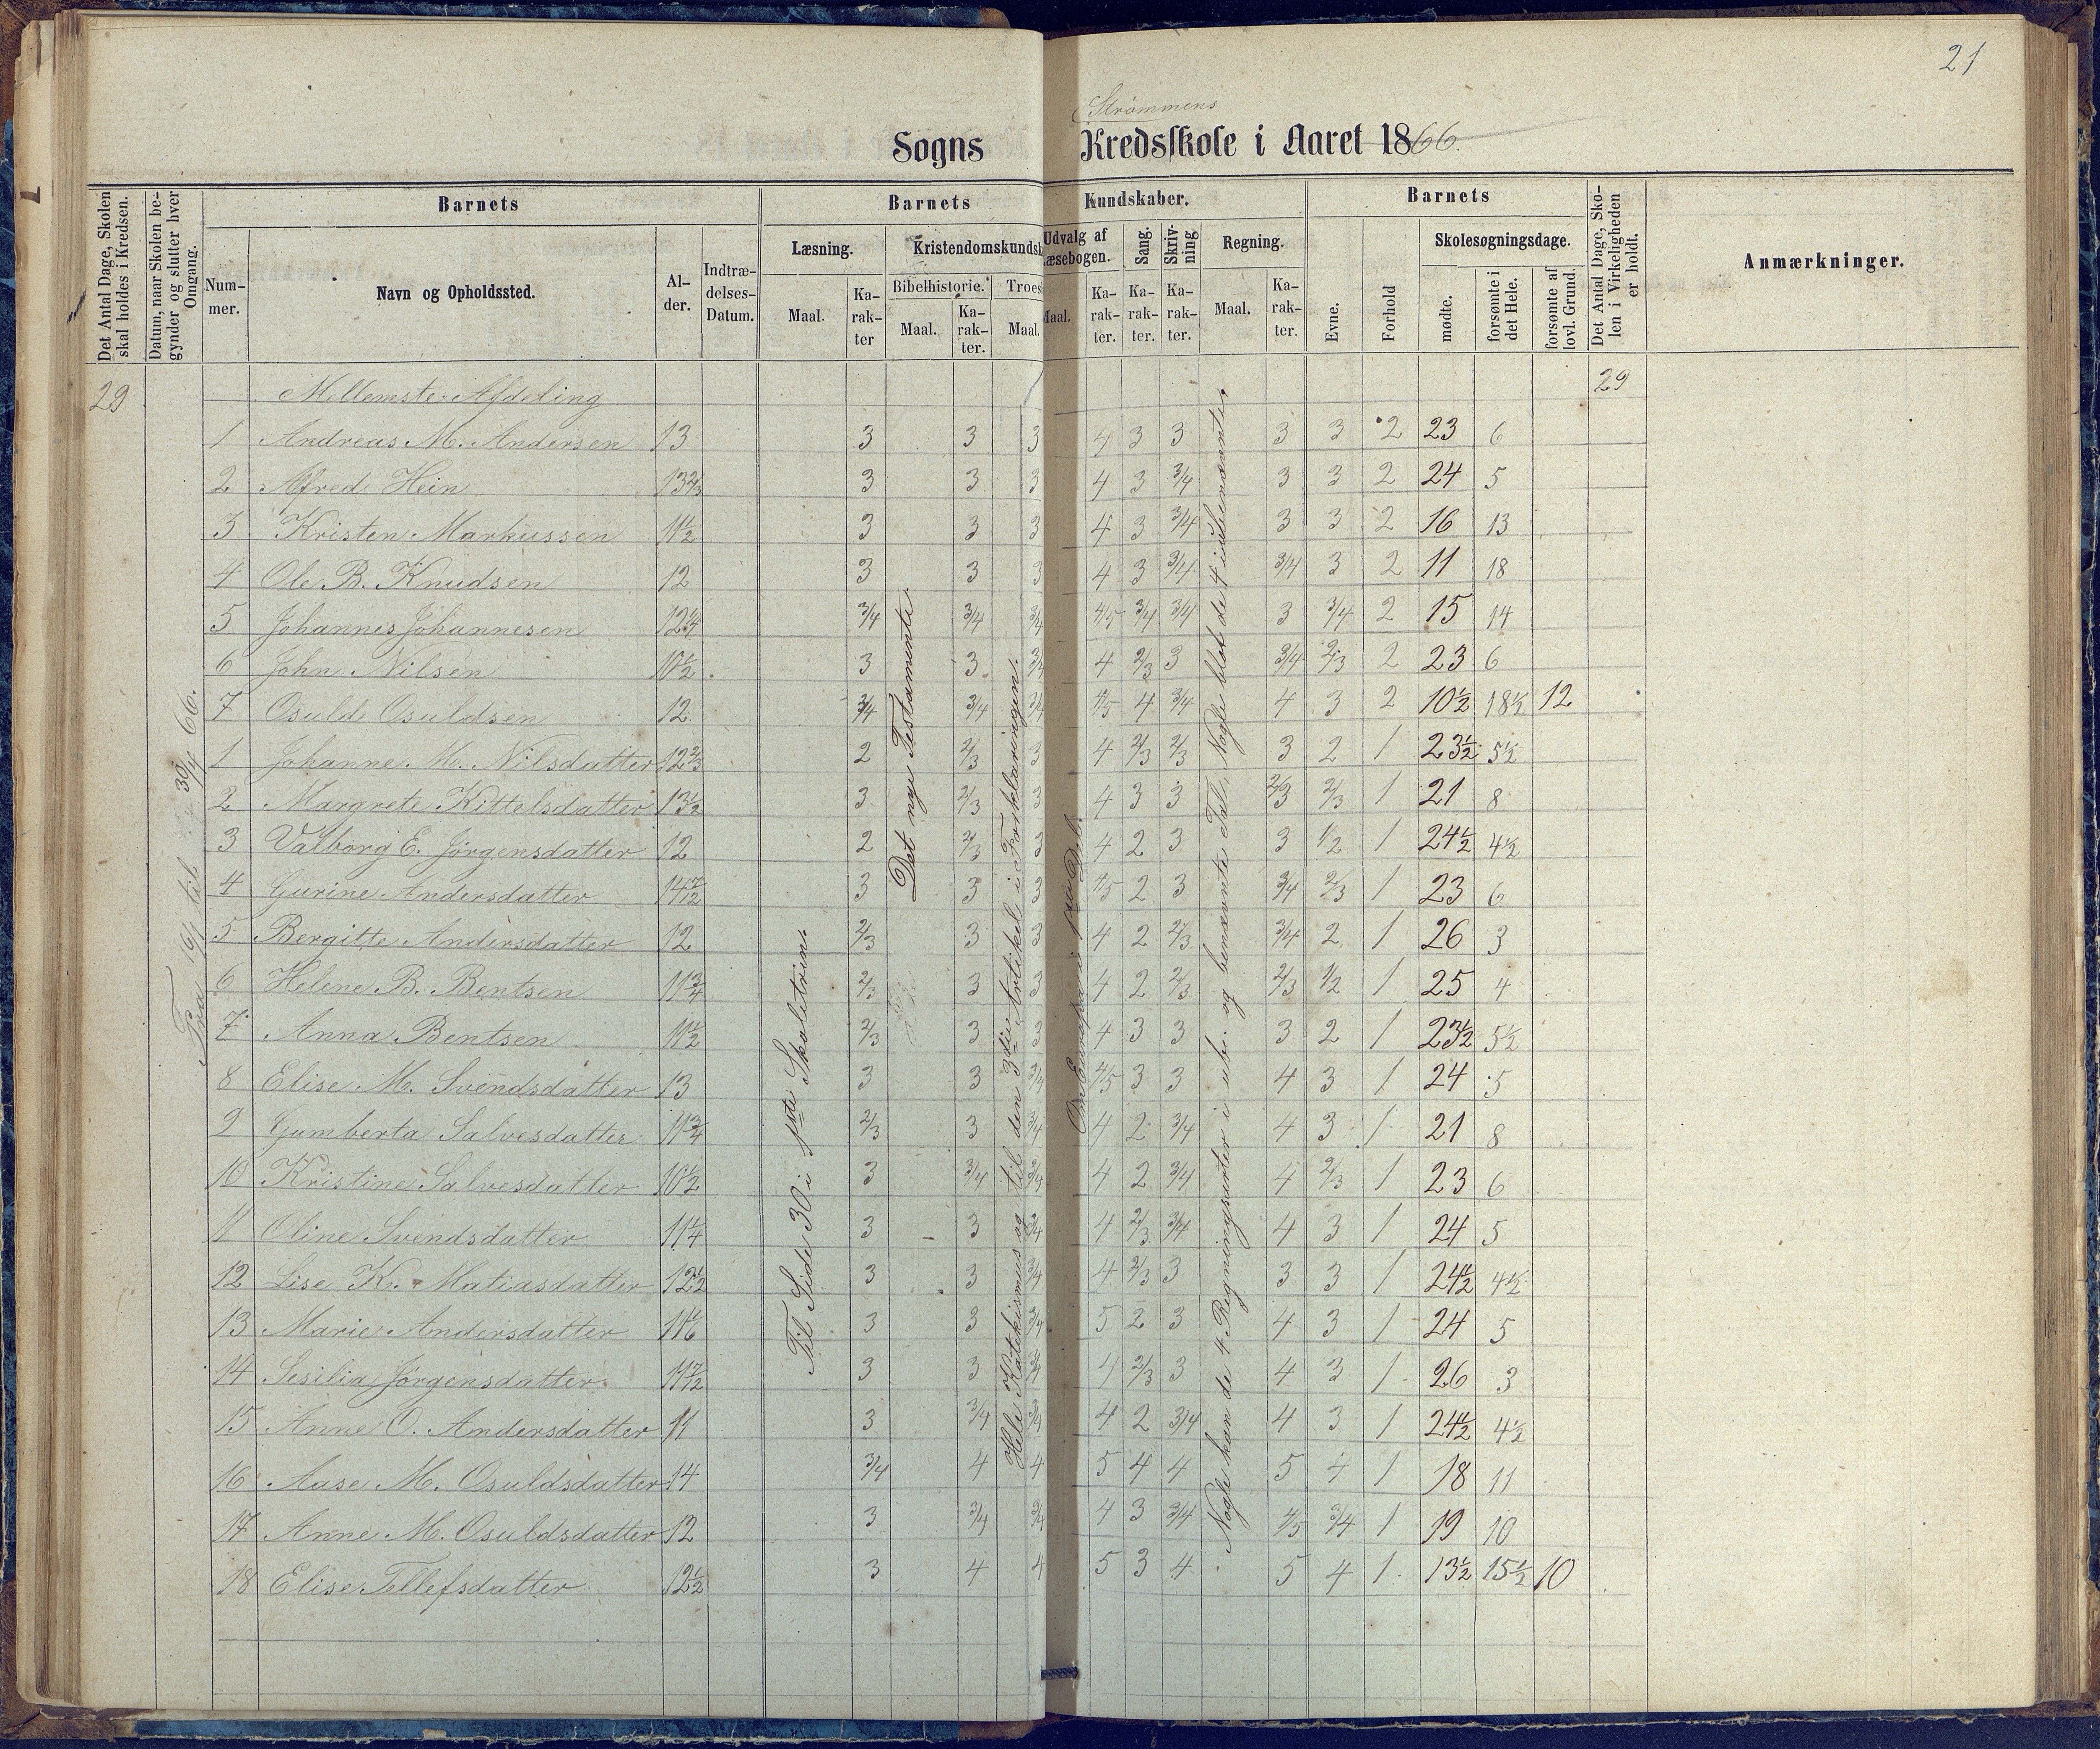 21
Strømmens
Sogns Kredsskole i Aaret 1866.
Det Antal Dage, Skolen skal holdes i Kredsen.
Datum, naar Skolen begynder og slutter hver Omgang.
Barnets
Nummer.
Navn og Opholdssted.
Alder.
Indtrædelses-Datum.
Barnets Kundskaber.
Læsning.
Maal.
Karakter
Kristendomskundsk
Bibelhistorie.
Maal.
Karakter.
Troes
Maal.
Udvalg af
Læsebogen.
Maal.
Karakter.
Sang.
Karakter.
Skrivning
Karakter.
Regning.
Maal.
Karakter.
Barnets
Evne.
Forhold
Skolesøgningsdage.
mødte.
forsømte i det Hele.
forsømte af lovl. Grund.
Det Antal Dage, Skolen i Virkeligheden er holdt.
Anmærkninger.
29 Mellemste Afdeling 29
1 Andreas M. Andersen 13 3 3 3 4 3 3 3 3 2 23 6
2 Alfred Hein 13 2/3 3 3 3 4 3 3/4 3 3 2 24 5
3 Kristen Markussen 11 1/2 3 3 3 4 3 3/4 3 3 2 16 13
4 Ole B. Knudsen 12 3 3 3 4 3 3/4 3/4 3 2 11 18
5 Johannes Johannesen 12 1/4 3/4 3/4 3/4 4/5 3/4 3/4 3 3/4 2 15 14
6 John Nilsen 10 1/2 3 3 3/4 4 2/3 3 3/4 2/3 2 23 6
7 Osuld Osuldsen 12 3/4 3/4 3/4 4/5 4 3/4 4 3 2 10 1/2 18 1/2 12
1 Johanne M. Nilsdatter 12 2/3 2 2/3 3 4 2/3 2/3 3 2 1 23 1/2 5 1/2
2 Margrete Kittelsdatter 13 1/2 3 2/3 3 4 3 3 2/3 2/3 1 21 8
3 Valborg E. Jørgensdatter 12 2 2/3 3 4 2 3 3 1/2 1 24 1/2 4 1/2
4 Gurine Andersdatter 14 1/2 3 3 3 4/5 2 3 3/4 2/3 1 23 6
5 Bergitte Andersdatter 12 2/3 3 3 4 2 2/3 3/4 2 1 26 3
6 Helene B. Bentsen 11 3/4 2/3 3 3 4 2 2/3 2/3 1/2 1 25 4
7 Anna Bentsen 11 1/2 2/3 3 3 4 3 3 3 2 1 23 1/2 5 1/2
8 Elise M. Svendsdatter 13 3 3 3/4 4/5 3 3 4 3 1 24 5
9 Gumberta Salvesdatter 11 3/4 2/3 3 3/4 4 2 3/4 4 3 1 21 8
10 Kristine Salvesdatter 10 1/2 3 3/4 3/4 4 2 3/4 4 2/3 1 23 6
11 Oline Svendsdatter 11 1/4 3 3 3/4 4 2/3 3/4 4 3 1 24 5
12 Lise K. Matiasdatter 12 1/2 3 3 3/4 4 2/3 3 3 3 1 24 1/2 4 1/2
13 Marie Andersdatter 11 1/6 3 3 3/4 5 2 3 4 3 1 24 5
14 Sesilia Jørgensdatter 11 1/2 3 3 3/4 4 2/3 3 4 3 1 26 3
15 Anne O. Andersdatter 11 3 3/4 3/4 4 2 3/4 4 3 1 24 1/2 4 1/2
16 Aase M. Osuldsdatter 14 3/4 4 4 5 4 4 5 4 1 18 11
17 Anne M. Osuldsdatter 12 3 3/4 3/4 4 3 3/4 4/5 3/4 1 19 10
18 Elise Tellefsdatter 12 1/2 3 4 4 5 3 4 5 4 1 13 1/2 15 1/2 10
Fra 16/1 til 30/4 66.
Til Side 30 i 1ste Skoletrin.
Det nye Testamente.
Hele Katekismus og til den 3die Artikel i Forklaringen.
Om Europa
Nogle kan de 4 Regningsarter i ube. og benævnte Tal, Nogle blot de 4 i ubenævnte.